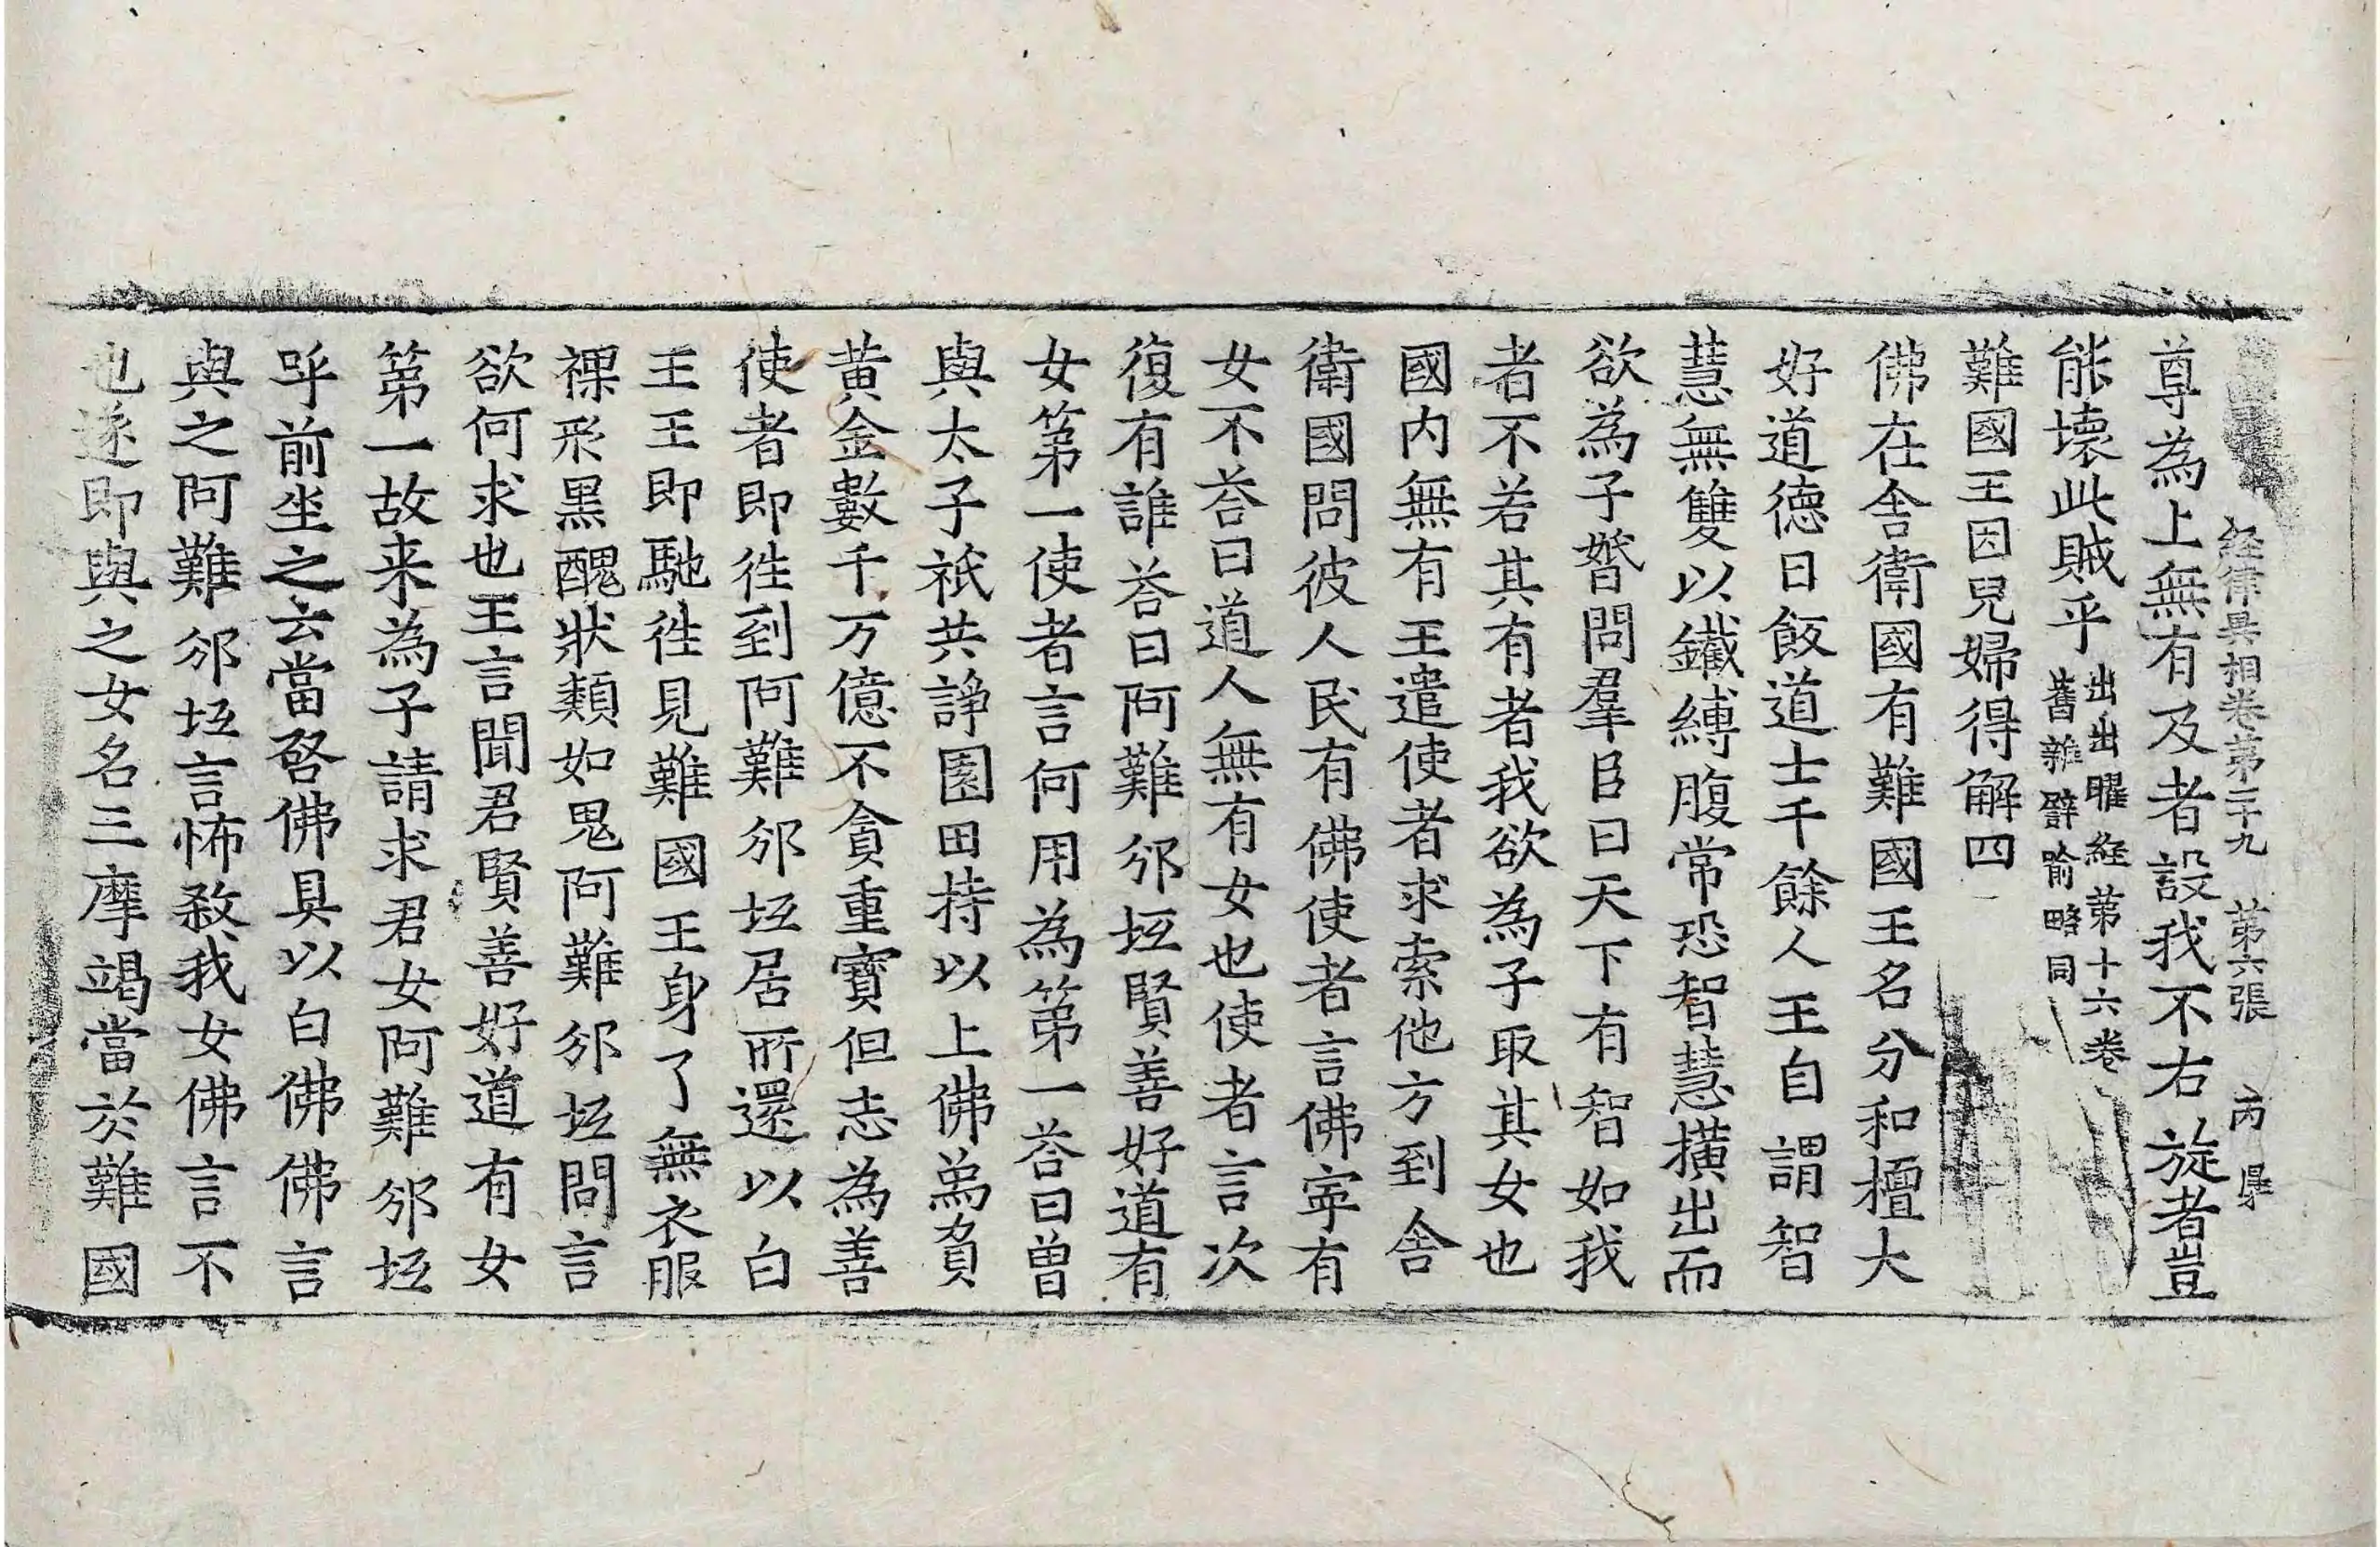 経律異相卷第二十九 第六張 丙 㝵
尊為上無有及者設我不右旋者豈
能壞此賊乎
出出曜経第十六卷
舊雜譬喻略同
難國王因兒婦得解四
佛在舍衛國有難國王名分和檀大
好道德日飯道士千餘人王自謂智
慧無雙以鐵縛腹常恐智慧橫出而
欲為子婚問羣臣曰天下有智如我
者不若其有者我欲為子取其女也
國內無有王遣使者求索他方到舍
衛國問彼人民有佛使者言佛寧有
女不荅曰道人無有女也使者言次
復有誰荅曰阿難邠坻賢善好道有
女第一使者言何用為第一荅曰曽
與太子祇共諍園田持以上佛為貧
黃金數千万億不貪重寶但志為善
使者即徃到阿難邠坻居所還以白
王王即馳徃見難國王身了無衣服
裸形黑醜狀類如鬼阿難邠坻問言
欲何求也王言聞君賢善好道有女
第一故来為子請求君女阿難邠坻
呼前坐之云當啓佛具以白佛佛言
與之阿難邠坻言怖殺我女佛言不
也遂即與之女名三摩竭當於難國